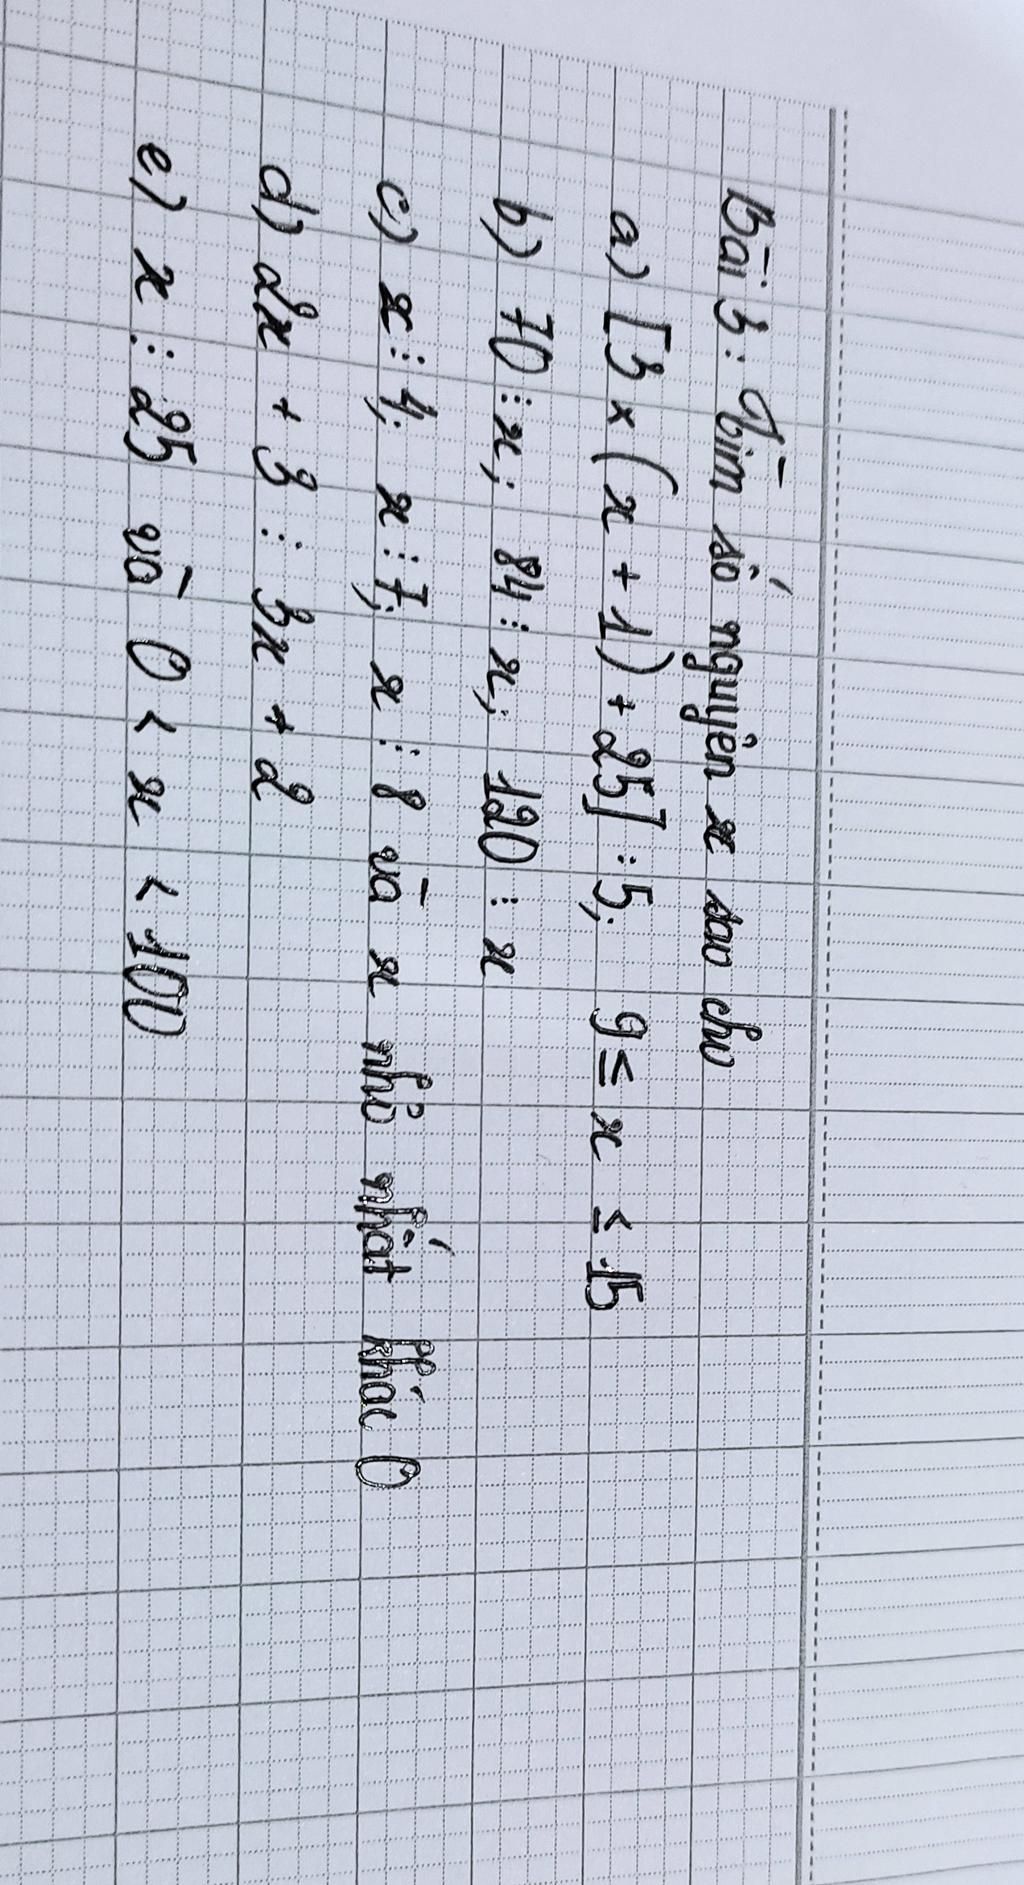 Bài 3: Tìm số nguyên x sao cho
a) [3 × (x + 1) + 25] ⋮ 5; 9 ≤ x ≤ 15
b) 70 ⋮ x; 84 ⋮ x; 120 ⋮ x
c) x ⋮ 4; x ⋮ 7; x ⋮ 8 và x nhỏ nhất khác 0
d) 2x + 3 ⋮ 3x + 2
e) x ⋮ 25 và 0 < x < 100